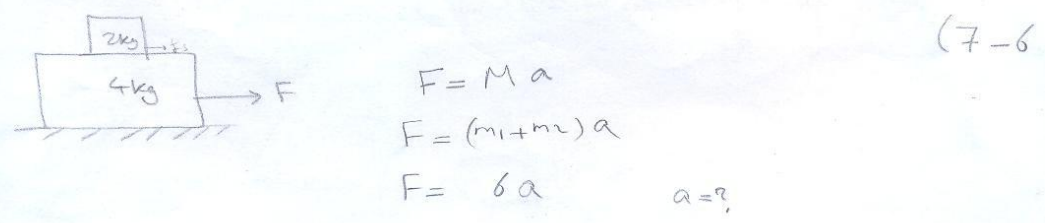 (7-6
2kg
fs
4kg
F
F = Ma
F = (m1+m2)a
F = 6a
a=?